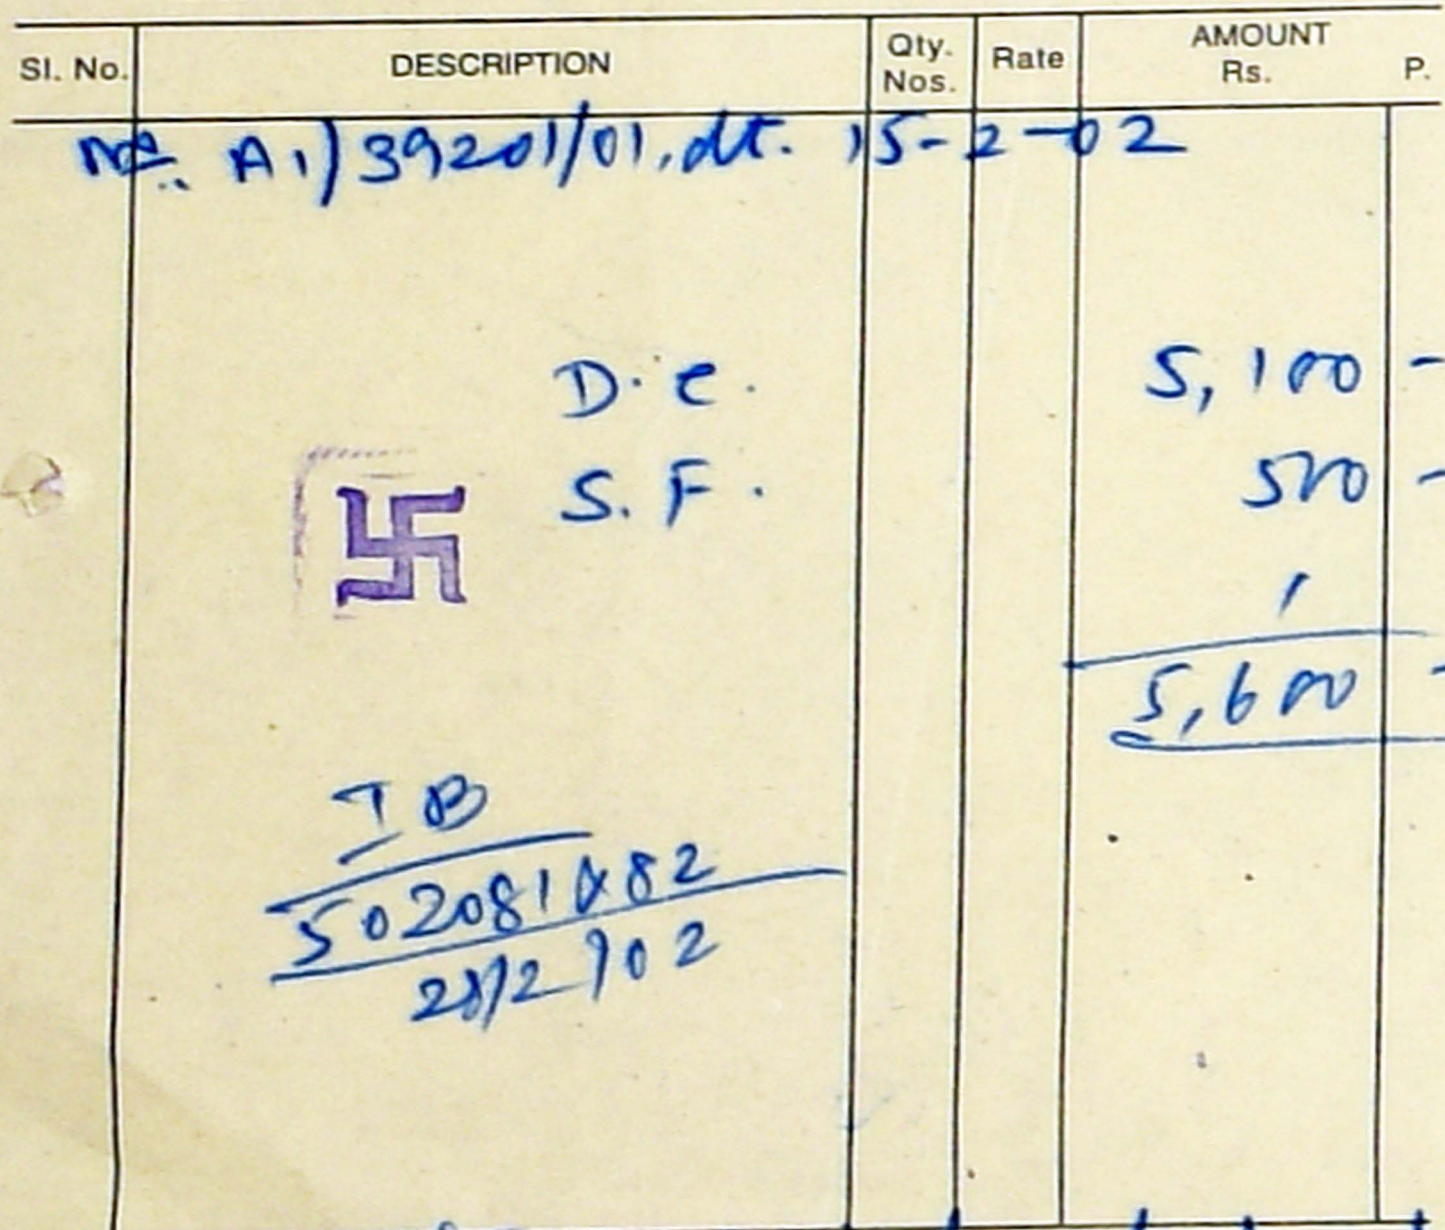 Sl. No. DESCRIPTION Qty. Nos. Rate AMOUNT Rs. P.
No. A1/39201/01, dt. 15-2-02
D.C. 5,100 -
S.F. 500 -
5,600 -
IB
28/2/02